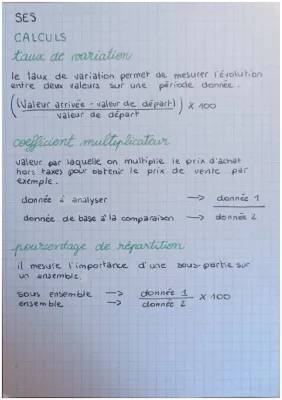 SES
CALCULS
taux de variation
le taux de variation permet de mesurer l'évolution
entre deux valeurs sur une période donnée.
((Valeur arrivée - valeur de départ) / valeur de départ) x 100
coefficient multiplicateur
valeur par laquelle on multiplie le prix d'achat
hors taxes pour obtenir le prix de vente par
exemple.
donnée à analyser → donnée 1
donnée de base à la comparaison → donnée 2
pourcentage de répartition
il mesure l'importance d'une sous-partie sur
un ensemble.
sous ensemble → donnée 1
ensemble → donnée 2 x 100